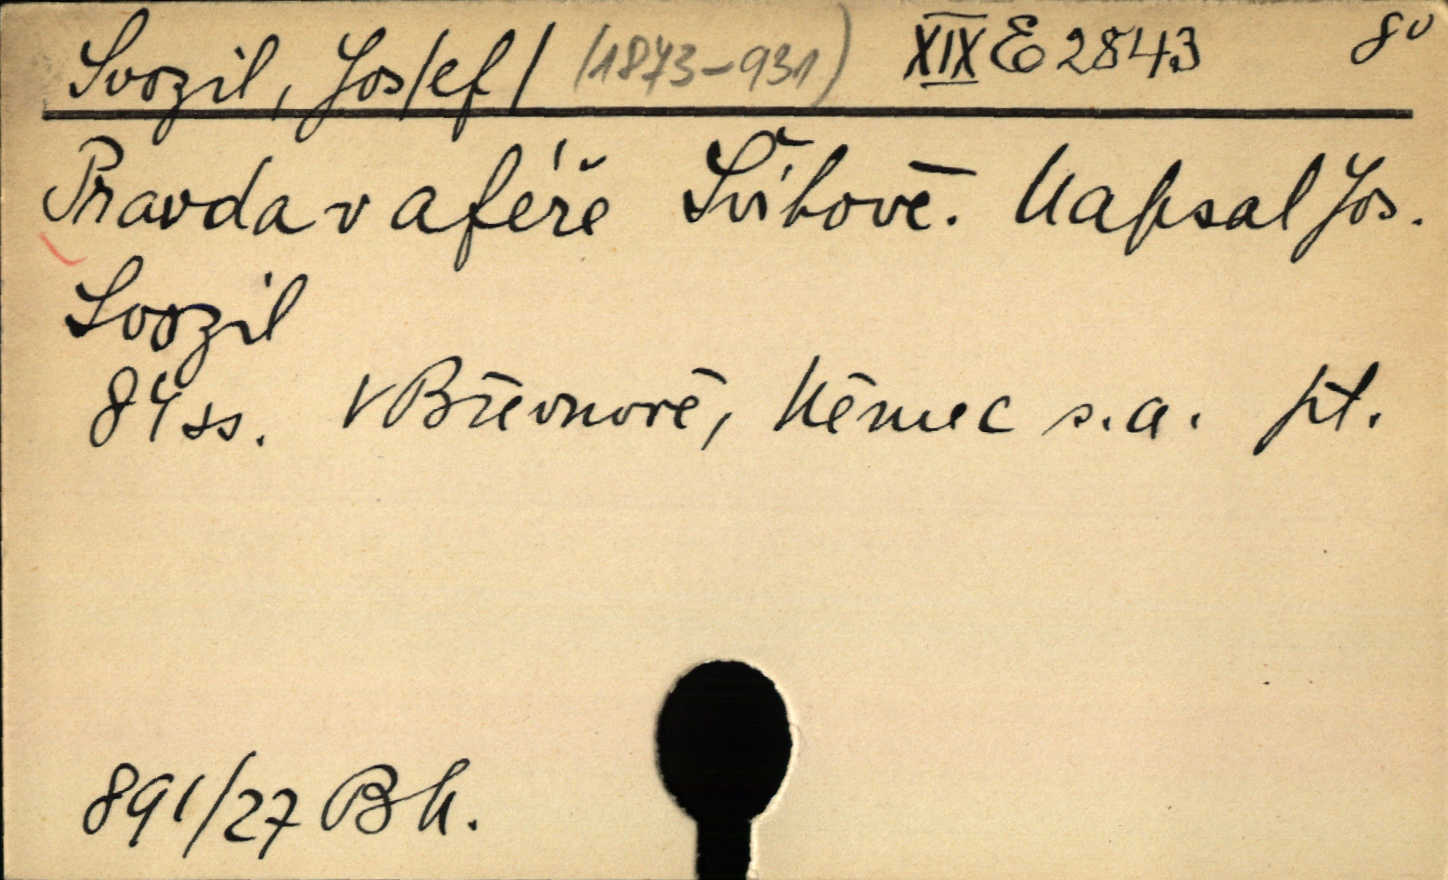 Svozil, Jos/ef/ (1873-931) XIX E 2843 8°
Pravda v aféře Švihově. Napsal Jos.
Svozil
84 ss. V Břevnově, Němec s.a. pt.
891/27 Bh.